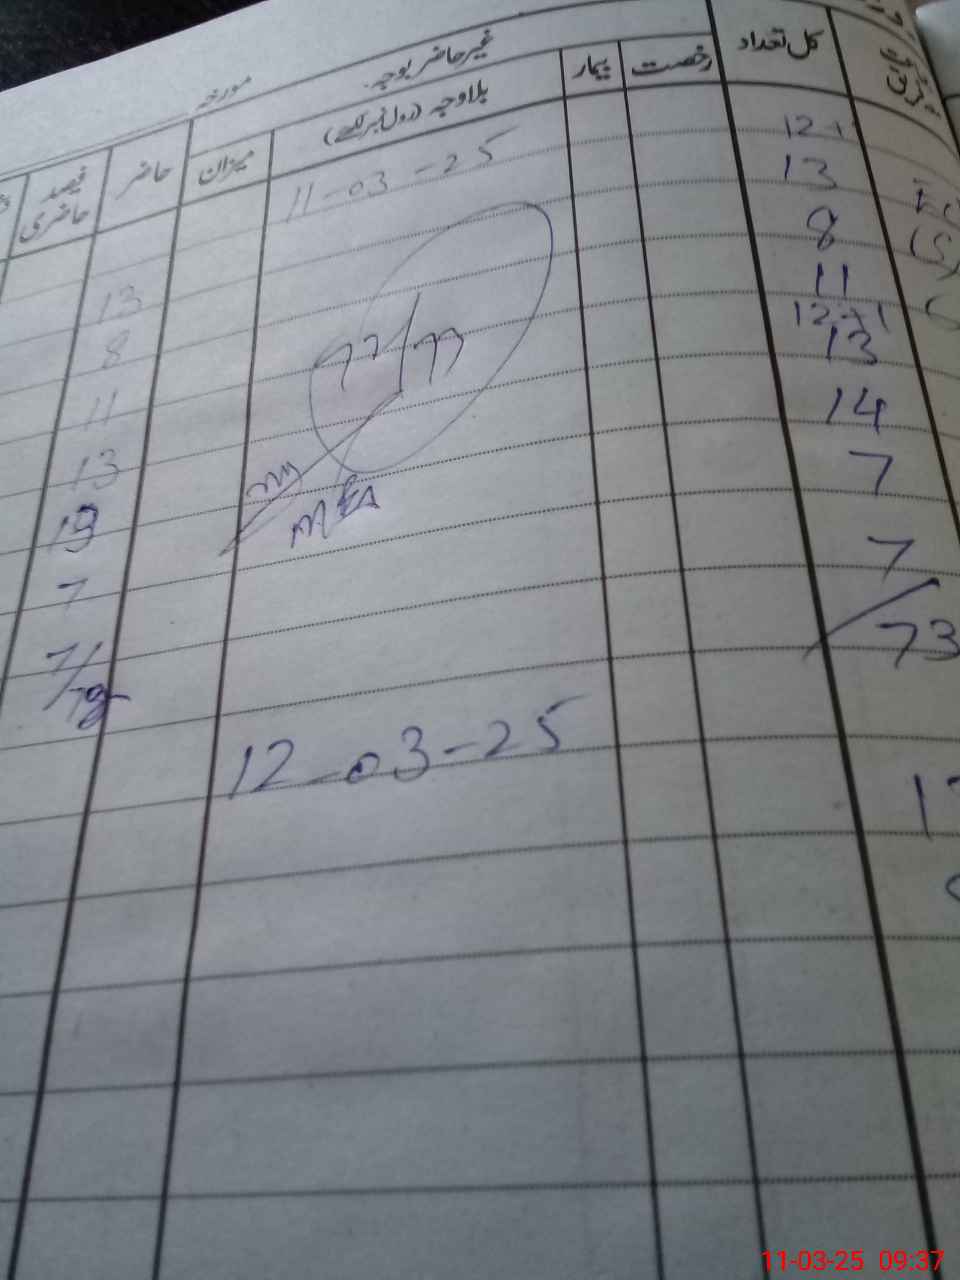 مورخہ
غیر حاضر بوجہ
فیصد حاضری
حاضر
میزان
بلاوجہ (رول نمبر لکھئے)
بیمار
رخصت
کل تعداد
11-03-25
12+1
13
8
11
12+1
13
14
7
7
73
13
8
11
13
7
7
77/77
MEA
12-03-25
11-03-25 09:37